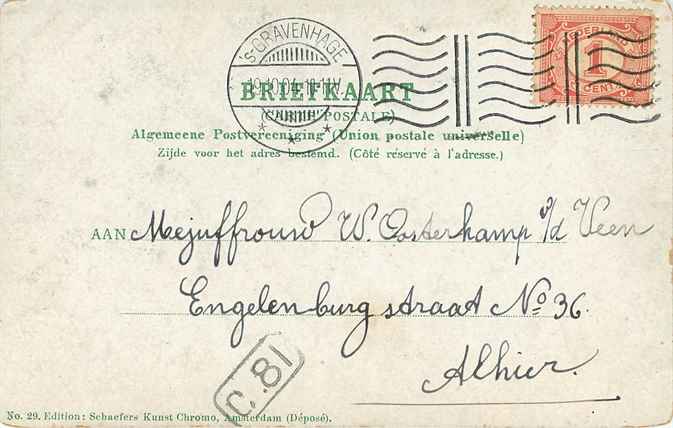 'S-GRAVENHAGE
19.10.04. 10-11V.
1
CENT
BRIEFKAART
(CARTE POSTALE)
Algemeene Postvereeniging (Union postale universelle)
Zijde voor het adres bestemd. (Côté réservé à l'adresse.)
AAN Mejuffrouw W. Oosterkamp v/d Veen
Engelenburgstraat No 36.
Alhier.
C.81
No. 29. Edition: Schaefers Kunst Chromo, Amsterdam (Déposé).